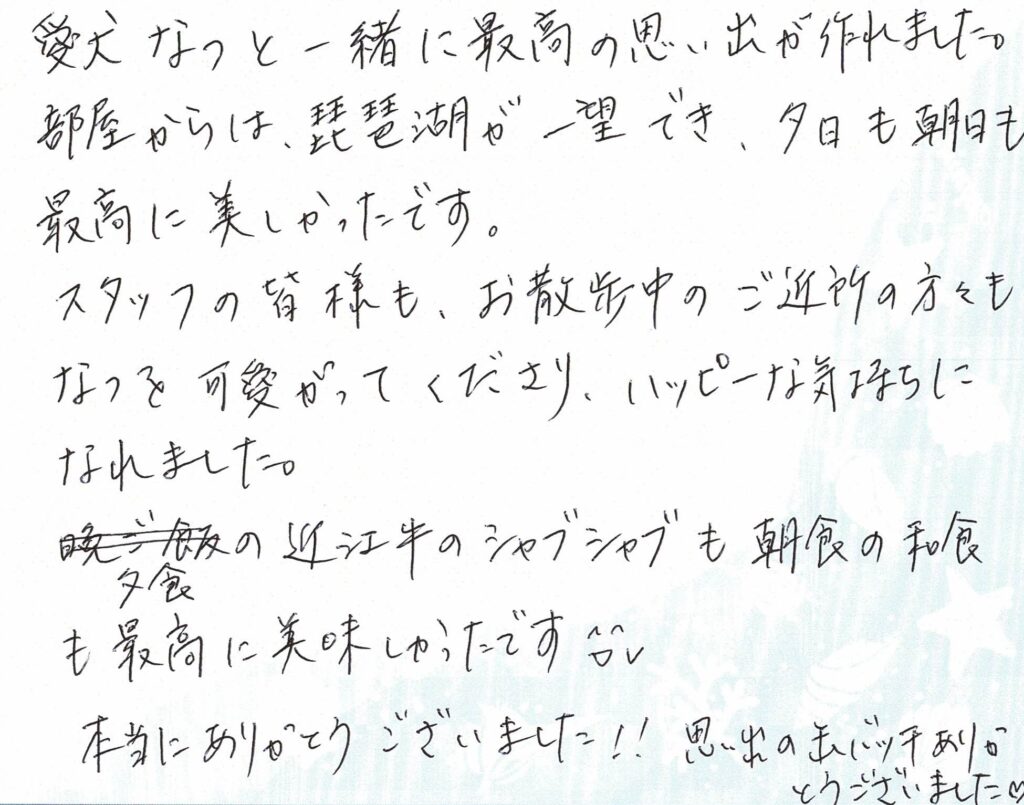 愛犬なつと一緒に最高の思い出が作れました。
部屋からは、琵琶湖が一望でき、夕日も朝日も
最高に美しかったです。
スタッフの皆様も、お散歩中のご近所の方々も
なつを可愛がってくださり、ハッピーな気持ちに
なれました。
晩ご飯の近江牛のシャブシャブも朝食の和食
夕食
も最高に美味しかったです
本当にありがとうございました!! 思い出の缶バッチありが
とうございました♡